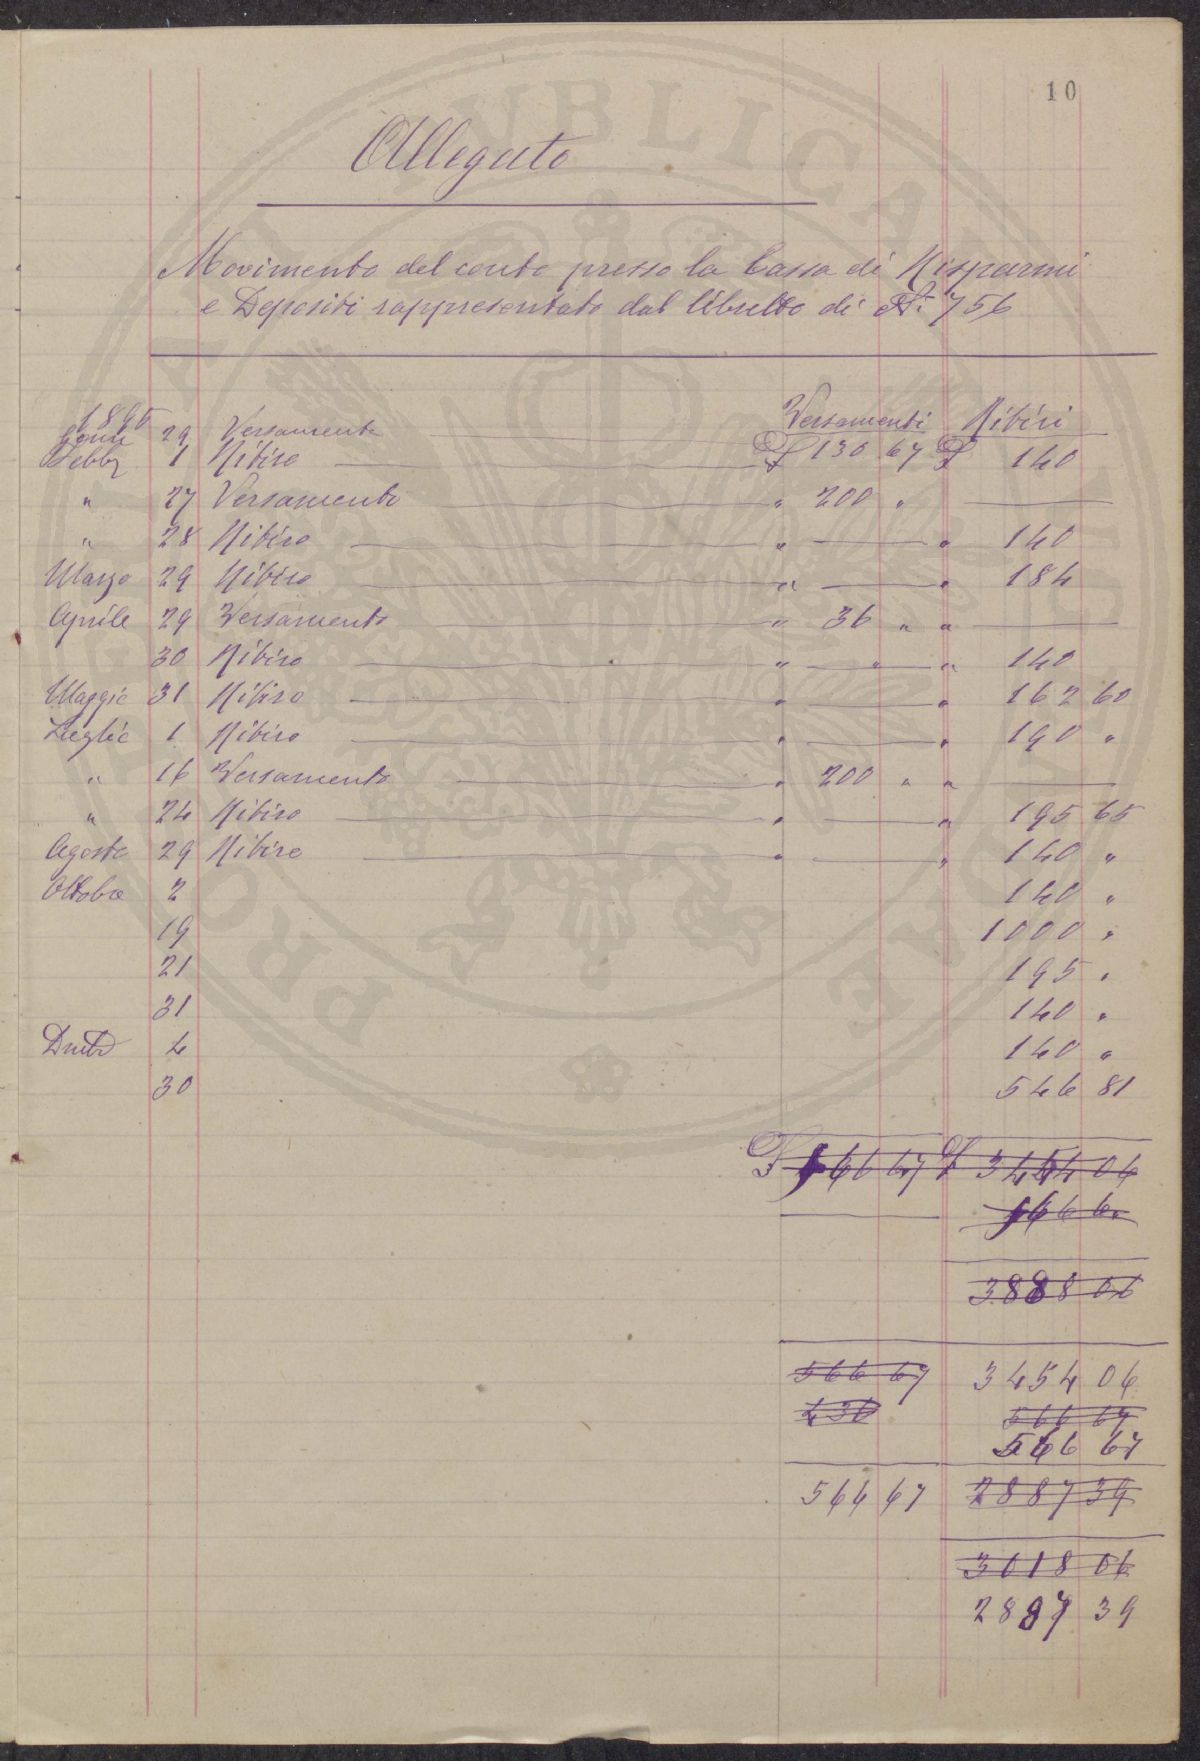 10
Allegato
Movimento del conto presso la Cassa di Risparmi
e Depositi rappresentato dal libretto di N: 756
Versamenti Ritiri
1895
Genn 29 Versamento £ 130 67 £
Febbr 1 Ritiro 140
" 27 Versamento " 200 "
" 28 Ritiro " " 140
Marzo 29 Ritiro " " 184
Aprile 29 Versamento " 36 " "
30 Ritiro " " " 140
Maggio 31 Ritiro " " 162 60
Luglio 1 Ritiro " " 190 "
" 16 Versamento " 200 " "
" 24 Ritiro " " 195 65
Agosto 29 Ritiro " " 140 "
Ottobre 2 140 "
19 1000 "
21 195 "
31 140 "
4 140 "
30 546 81
£ 566 67 £ 3454 06
3888 06
566 67 3454 06
436 566 67
566 67
566 67 2887 39
3018 06
2887 39
PUBLICAE